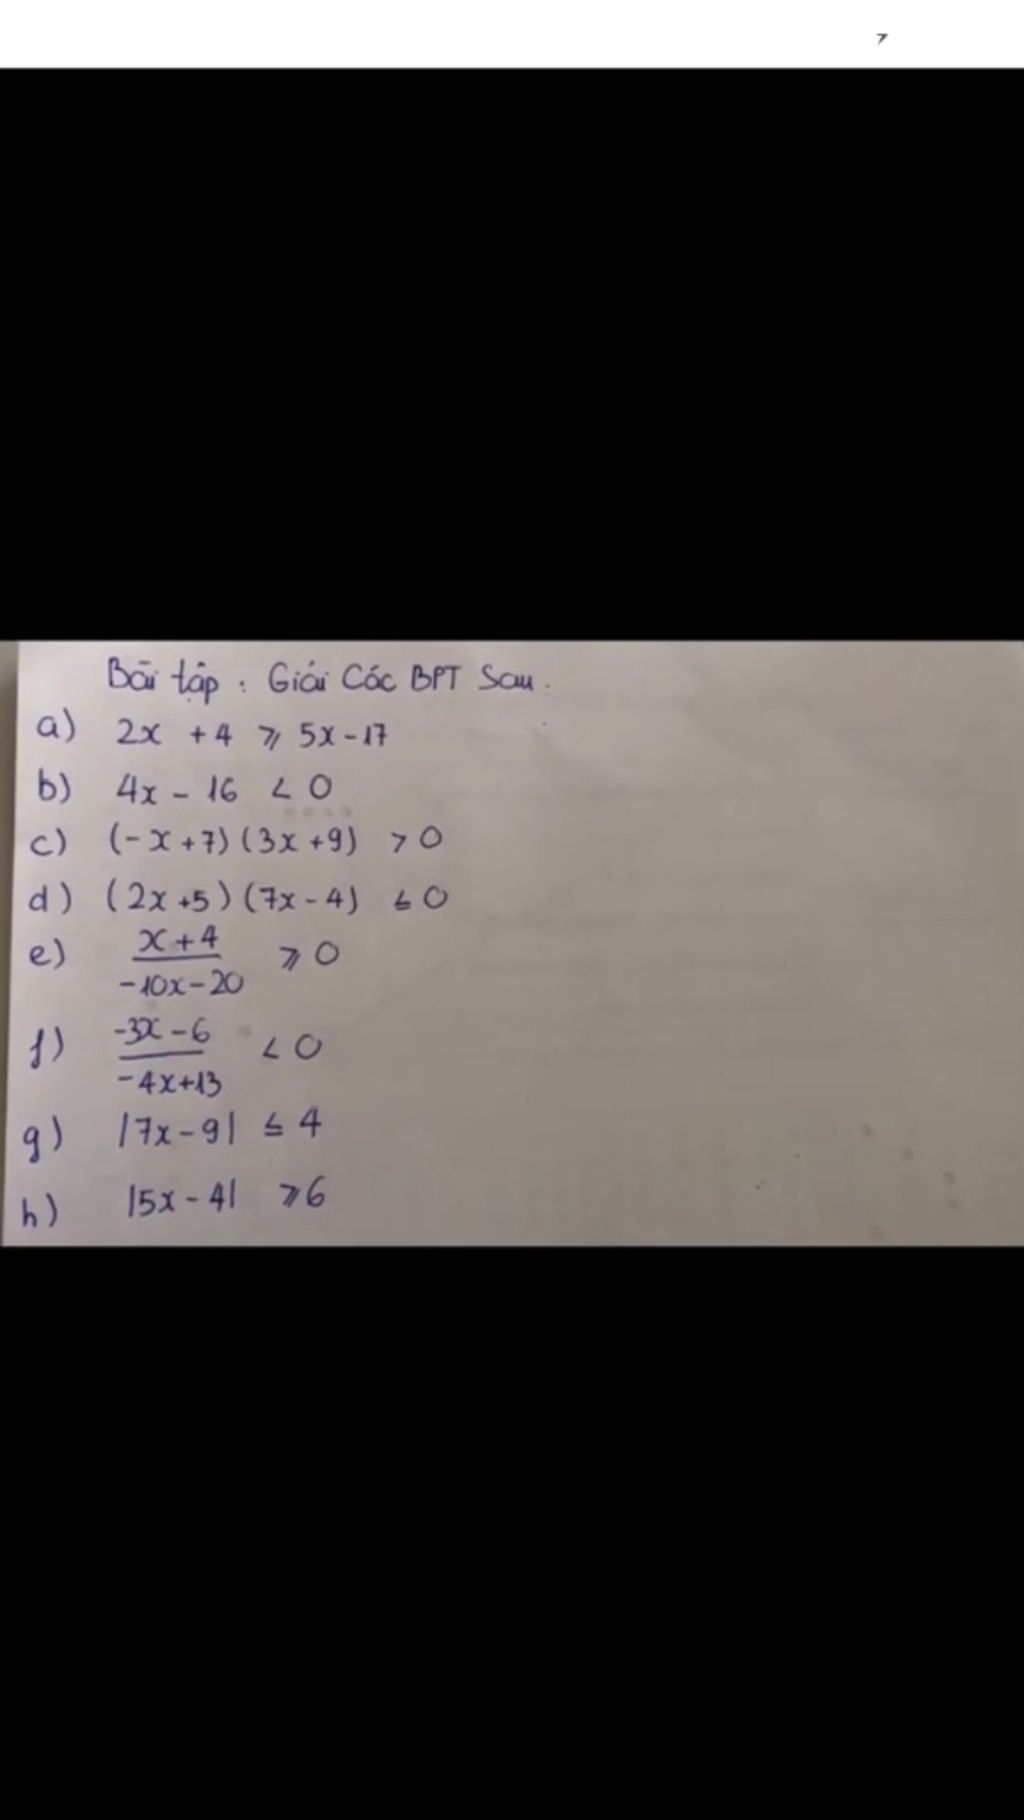 Bài tập : Giải Các BPT Sau.
a) 2x + 4 ⩾ 5x - 17
b) 4x - 16 < 0
c) (-x + 7) (3x + 9) > 0
d) (2x + 5) (7x - 4) ≤ 0
e) \frac{x + 4}{-10x - 20} ⩾ 0
f) \frac{-3x - 6}{-4x + 13} < 0
g) |7x - 9| ≤ 4
h) |5x - 4| ⩾ 6